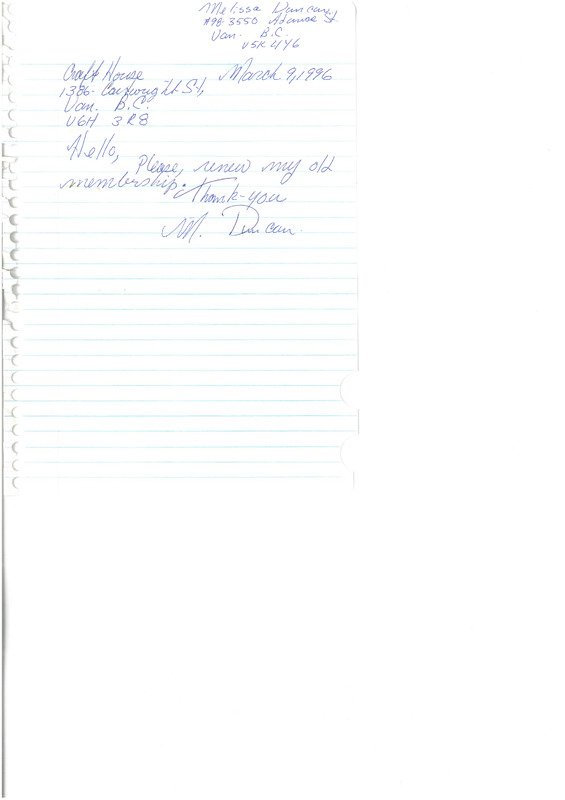 Melissa Duncan
#98-3550 Adanac St.
Van. B.C.
V5K 4Y6
Craft House March 9, 1996
1386 Cartwright St,
Van. B.C.
V6H 3R8
Hello,
Please, renew my old
membership.
Thank-you
M. Duncan.